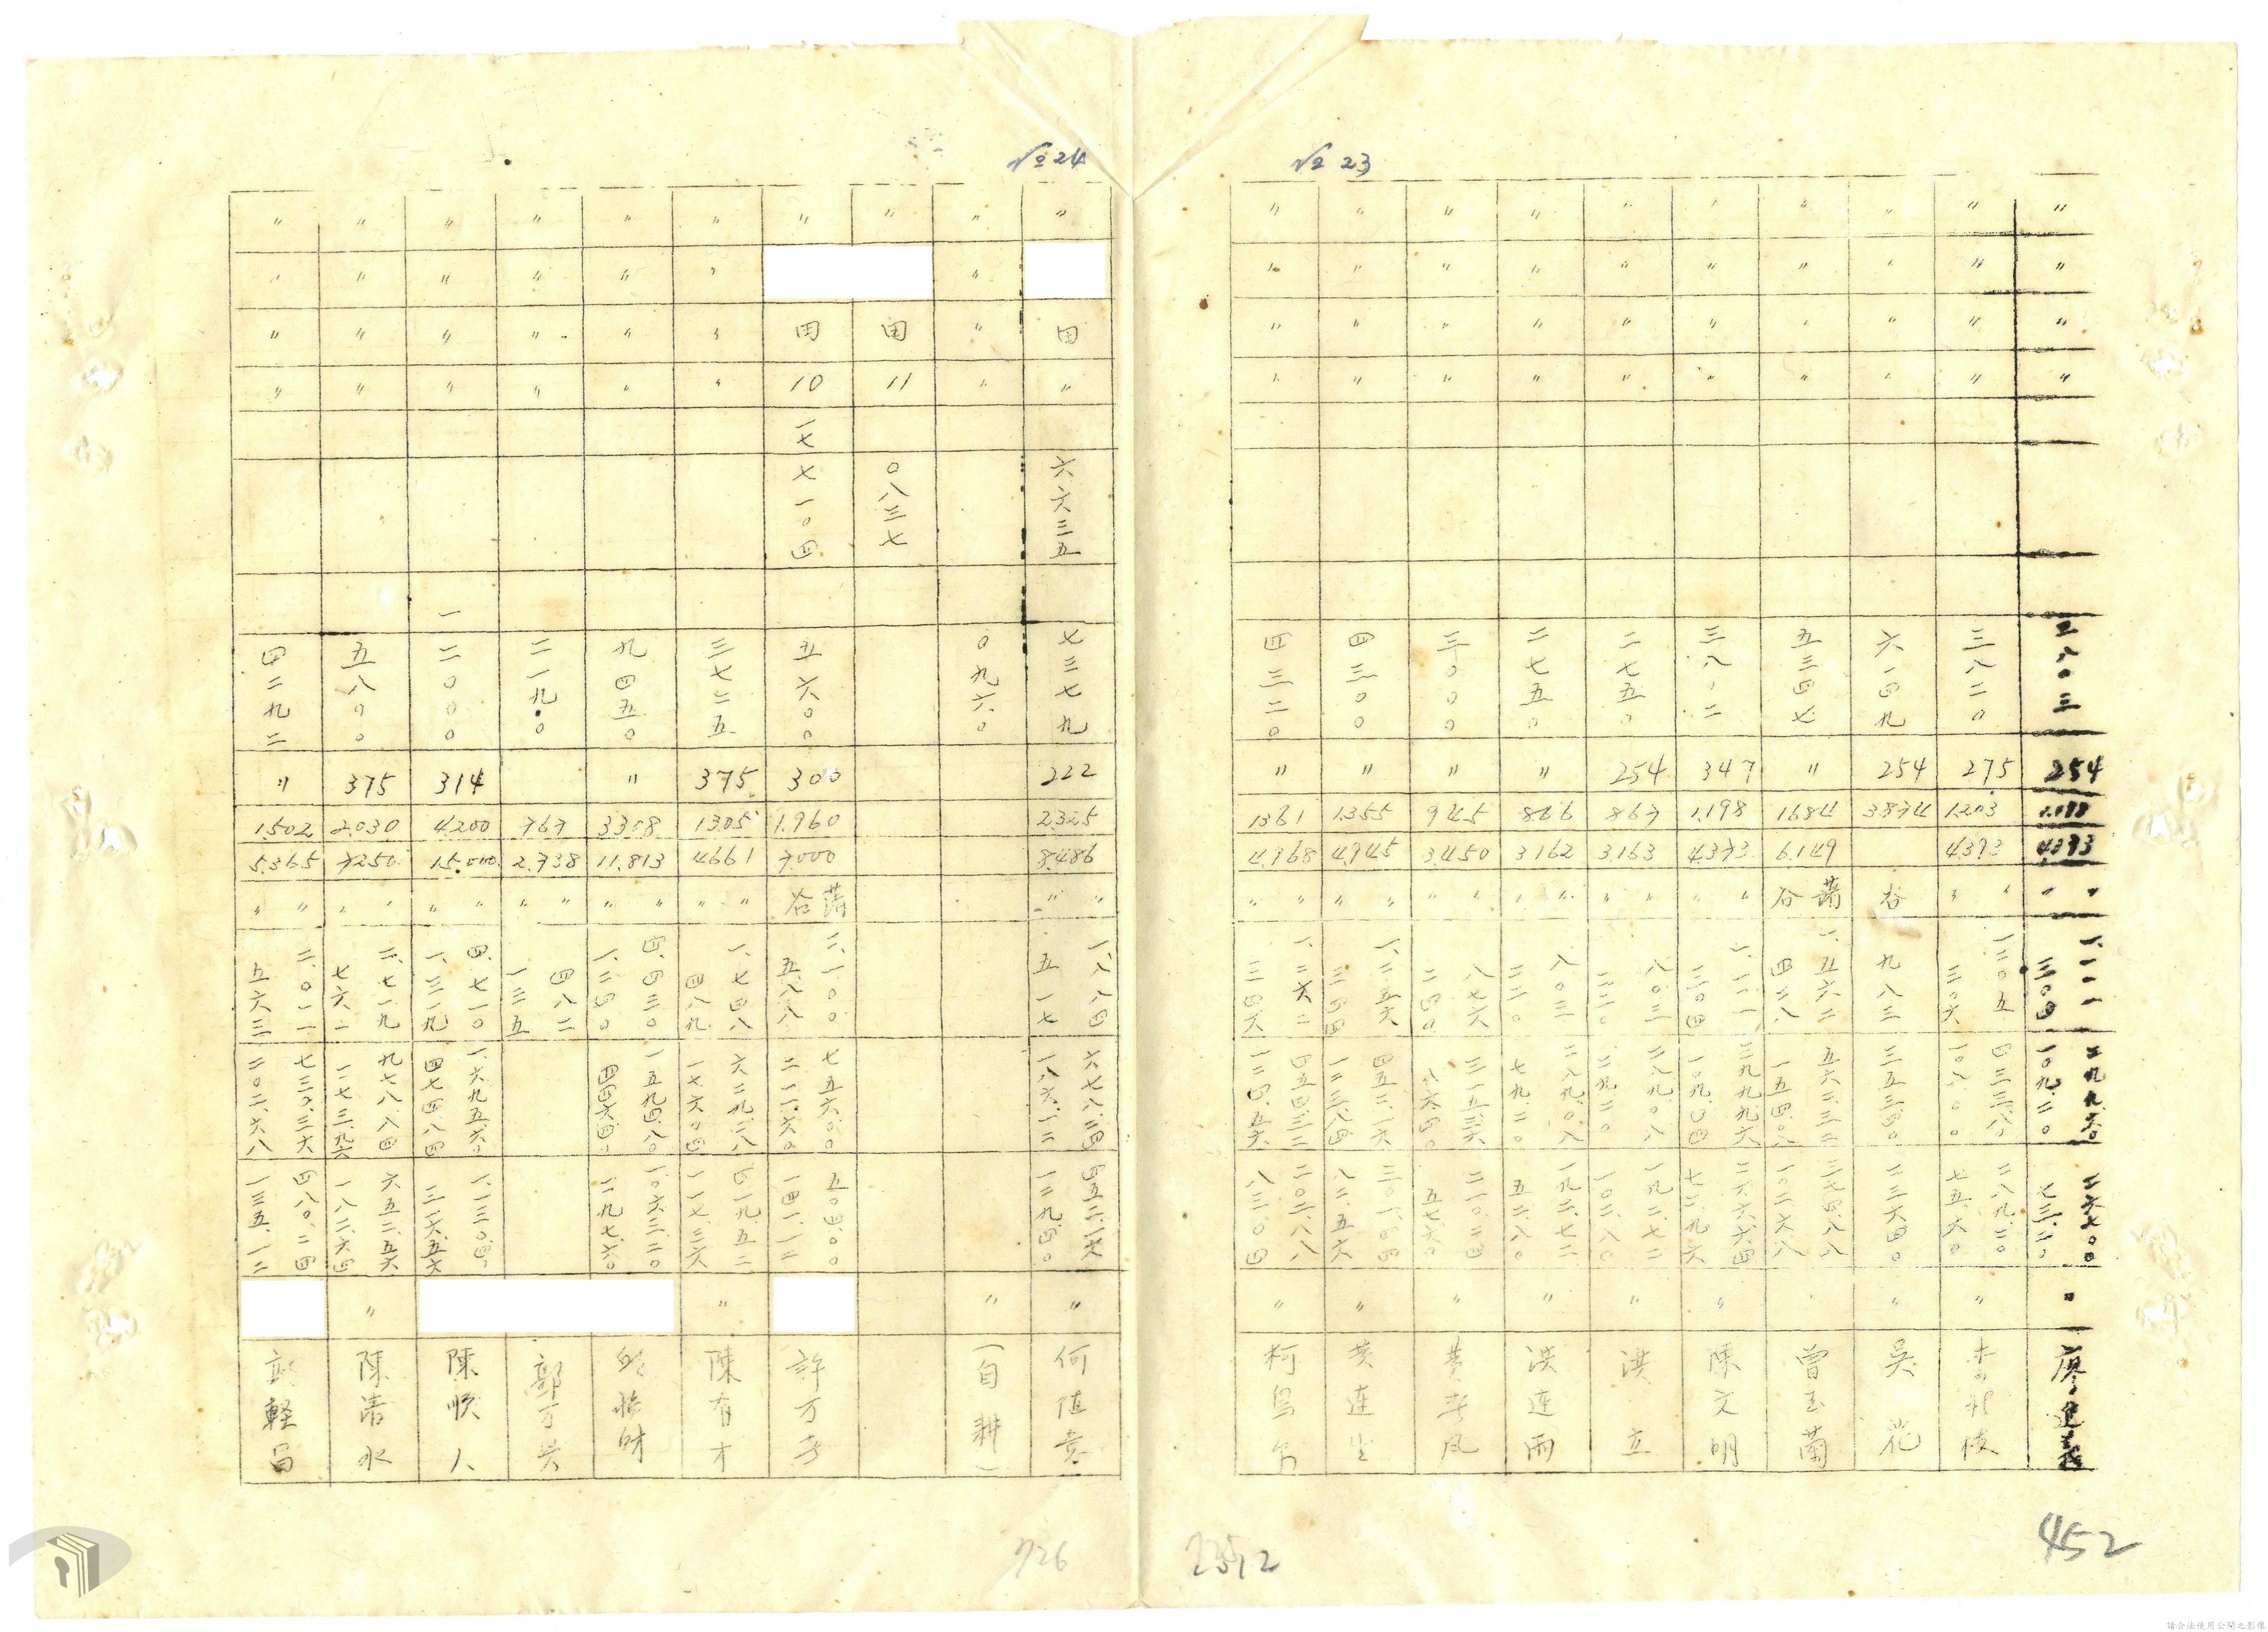 № 23
〃 〃 〃 〃 三八〇三 254 1.198 4393 〃 〃 一.一一一 三〇四 二九九.六〇 一〇九.二〇 二六七.〇〇 七三.二〇 〃 廖 義
〃 〃 〃 〃 三八二〇 275 1.203 4393 〃 〃 一二〇五 三〇六 四三三.八〇 一〇八.〇〇 二八九.二〇 七五.六〇 〃
〃 〃 〃 〃 六一四九 254 3834 谷 九八三 三五三.四〇 二三六四〇 〃 吳花
〃 〃 〃 〃 五三四七 〃 1684 6.149 蕃 谷 一.五六二 四二八 五六二.三二 一五四.〇八 三七四.八八 一〇二.六八 曾玉蘭
〃 〃 〃 〃 三八〇二 347 1.198 4.373 〃 〃 一.一一一 三〇四 三九九.九六 一〇九.〇四 二六六.六四 七二.九六 〃 陳文明
〃 〃 〃 〃 二七五〇 254 867 3.163 〃 〃 八〇三 二二〇 二八九.〇八 七九.二〇 一九二.七二 〃 洪立
〃 〃 〃 〃 二七五〇 〃 866 3162 〃 〃 八〇三 二二〇 二八九.〇八 七九.二〇 一九二.七二 五二.八〇 〃 洪連雨
〃 〃 〃 〃 三〇〇〇 〃 945 3.450 〃 〃 八七六 二四〇 三一五.三六 八六.四〇 二一〇.二四 五七.六〇 〃 黃 風
〃 〃 〃 〃 四三〇〇 〃 1.355 4.945 〃 〃 一.二五六 三四四 四五二.一六 一二三.八四 三〇一.四四 八二.五六 〃 黃連
〃 〃 〃 〃 四三二〇 〃 1361 4.968 〃 〃 一.二六二 三四六 四五四.三二 一二四.五六 三〇二.八八 八三.〇四 〃 柯
№ 24
〃 田 〃 六.六三五 七三七九 222 2.325 8.486 〃 〃 一.八八四 五一七 六七八.二四 一八六.一二 四五二.一六 一二九.四〇 〃 何
〃 〃 〃 〃 〇九六〇 〃 (自耕)
〃 田 11 〇八三七
〃 田 10 一七 七一〇四 五六〇〇 300 1.960 7.000 蕃 谷 二.一〇〇 五八八 七五六.〇〇 二一一.六〇 五〇四.〇〇 一四一.一二 許万
〃 〃 〃 〃 三七二五 375 1.305 4661 〃 〃 一.七四八 四八九 六二九.二八 一七六.〇四 四一九.五二 一一七.三六 〃 陳有才
〃 〃 〃 〃 九四五〇 〃 3308 11.813 〃 〃 四.四三〇 一.二四〇 一五九四.八〇 四四六.四〇 一.〇六三.二〇 二九七.六〇 財
〃 〃 〃 〃 二一九〇 767 2.738 〃 〃 四八二 一三五 郭万
〃 〃 〃 〃 一二〇〇〇 314 4.200 15.000 〃 〃 四.七一〇 一.三一九 一.六九五.六〇 四七四.八四 一.一三〇.四〇 三一六.五六 陳順人
〃 〃 〃 〃 五八〇〇 375 2.030 7250 〃 〃 二.七一九 七六一 九七八.八四 二七三.九六 六五二.五六 一八二.六四 〃 陳清水
〃 〃 〃 〃 四二九二 〃 1.502 5.365 〃 〃 二.〇一一 五六三 七二〇.三六 二〇二.六八 四八〇.二四 一三五.一二 輕
726
2512
452
請合法使用公開之影像